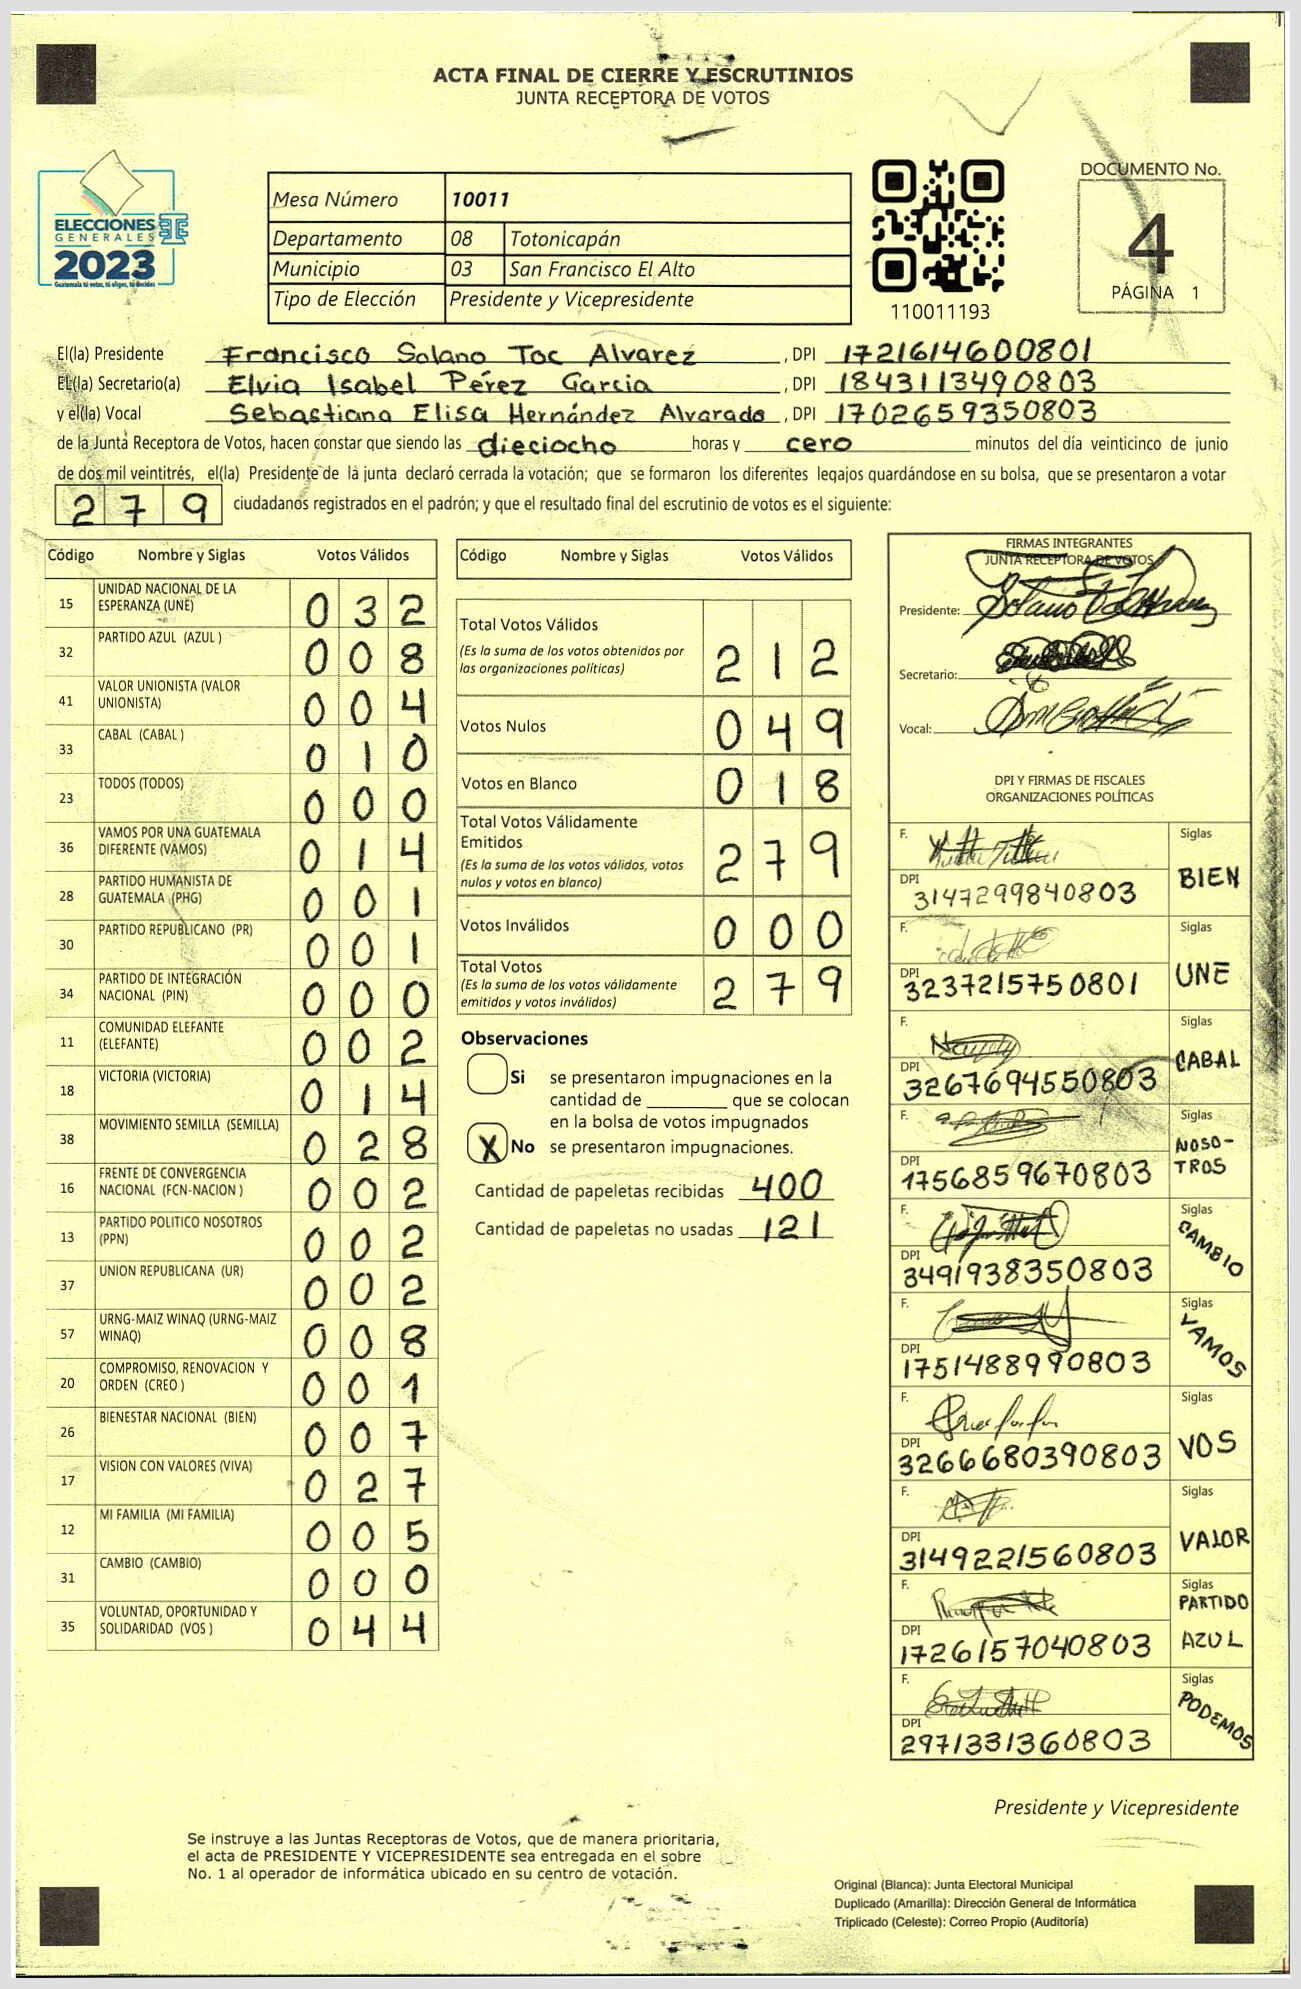 ACTA FINAL DE CIERRE Y ESCRUTINIOS
JUNTA RECEPTORA DE VOTOS
ELECCIONES
GENERALES
2023
Guatemala tú votas, tú eliges, tú decides
Mesa Número 10011
Departamento 08 Totonicapán
Municipio 03 San Francisco El Alto
Tipo de Elección Presidente y Vicepresidente
110011193
DOCUMENTO No.
4
PÁGINA 1
El(la) Presidente Francisco Solano Toc Alvarez, DPI 1721614600801
EL(la) Secretario(a) Elvia Isabel Pérez Garcia, DPI 1843113490803
y el(la) Vocal Sebastiana Elisa Hernández Alvarado, DPI 1702659350803
de la Junta Receptora de Votos, hacen constar que siendo las dieciocho horas y cero minutos del día veinticinco de junio
de dos mil veintitrés, el(la) Presidente de la junta declaró cerrada la votación; que se formaron los diferentes legajos guardándose en su bolsa, que se presentaron a votar
279 ciudadanos registrados en el padrón; y que el resultado final del escrutinio de votos es el siguiente:
Código Nombre y Siglas Votos Válidos
15 UNIDAD NACIONAL DE LA
ESPERANZA (UNE) 032
32 PARTIDO AZUL (AZUL ) 008
41 VALOR UNIONISTA (VALOR
UNIONISTA) 004
33 CABAL (CABAL ) 010
23 TODOS (TODOS) 000
36 VAMOS POR UNA GUATEMALA
DIFERENTE (VAMOS) 014
28 PARTIDO HUMANISTA DE
GUATEMALA (PHG) 001
30 PARTIDO REPUBLICANO (PR) 001
34 PARTIDO DE INTEGRACIÓN
NACIONAL (PIN) 000
11 COMUNIDAD ELEFANTE
(ELEFANTE) 002
18 VICTORIA (VICTORIA) 014
38 MOVIMIENTO SEMILLA (SEMILLA) 028
16 FRENTE DE CONVERGENCIA
NACIONAL (FCN-NACION ) 002
13 PARTIDO POLITICO NOSOTROS
(PPN) 002
37 UNION REPUBLICANA (UR) 002
57 URNG-MAIZ WINAQ (URNG-MAIZ
WINAQ) 008
20 COMPROMISO, RENOVACION Y
ORDEN (CREO ) 001
26 BIENESTAR NACIONAL (BIEN) 007
17 VISION CON VALORES (VIVA) 027
12 MI FAMILIA (MI FAMILIA) 005
31 CAMBIO (CAMBIO) 000
35 VOLUNTAD, OPORTUNIDAD Y
SOLIDARIDAD (VOS ) 044
Código Nombre y Siglas Votos Válidos
Total Votos Válidos
(Es la suma de los votos obtenidos por
las organizaciones políticas) 212
Votos Nulos 049
Votos en Blanco 018
Total Votos Válidamente
Emitidos
(Es la suma de los votos válidos, votos
nulos y votos en blanco) 279
Votos Inválidos 000
Total Votos
(Es la suma de los votos válidamente
emitidos y votos inválidos) 279
Observaciones
Si se presentaron impugnaciones en la
cantidad de ________ que se colocan
en la bolsa de votos impugnados
X No se presentaron impugnaciones.
Cantidad de papeletas recibidas 400
Cantidad de papeletas no usadas 121
FIRMAS INTEGRANTES
JUNTA RECEPTORA DE VOTOS
Presidente:
Secretario:
Vocal:
DPI Y FIRMAS DE FISCALES
ORGANIZACIONES POLÍTICAS
F. Siglas
BIEN
DPI
3147299840803
F. Siglas
UNE
DPI
3237215750801
F. Siglas
CABAL
DPI
3267694550803
F. Siglas
NOSO-
TROS
DPI
1756859670803
F. Siglas
CAMBIO
DPI
3491938350803
F. Siglas
VAMOS
DPI
1751488990803
F. Siglas
VOS
DPI
3266680390803
F. Siglas
VALOR
DPI
3149221560803
F. Siglas
PARTIDO
AZUL
DPI
1726157040803
F. Siglas
PODEMOS
DPI
2971331360803
Presidente y Vicepresidente
Se instruye a las Juntas Receptoras de Votos, que de manera prioritaria,
el acta de PRESIDENTE Y VICEPRESIDENTE sea entregada en el sobre
No. 1 al operador de informática ubicado en su centro de votación.
Original (Blanca): Junta Electoral Municipal
Duplicado (Amarilla): Dirección General de Informática
Triplicado (Celeste): Correo Propio (Auditoría)